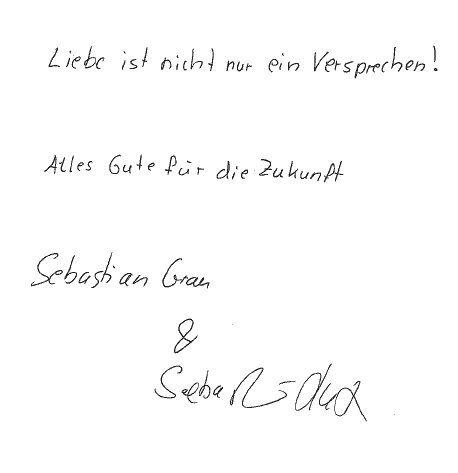 Liebe ist nicht nur ein Versprechen!
Alles Gute für die Zukunft
Sebastian Grau
&